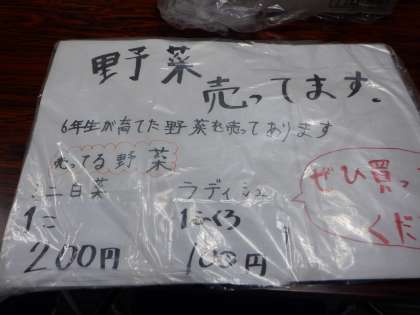 野菜
売ってます.
6年生が育てた野菜を売ってあります
売ってる野菜
ミニ白菜
1こ
200円
ラディシュ
1ふくろ
100円
ぜひ買っ
くだ